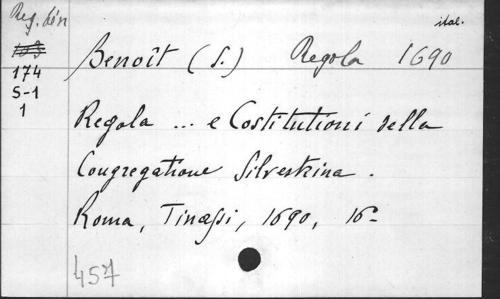 Reg. bén ital.
103
174
S-1
1
Benoît (S.) Regola 1690
Regola ... e Costitutioni della
Congregatione Silvestrina.
Roma, Tinassi, 1690, 16º
457